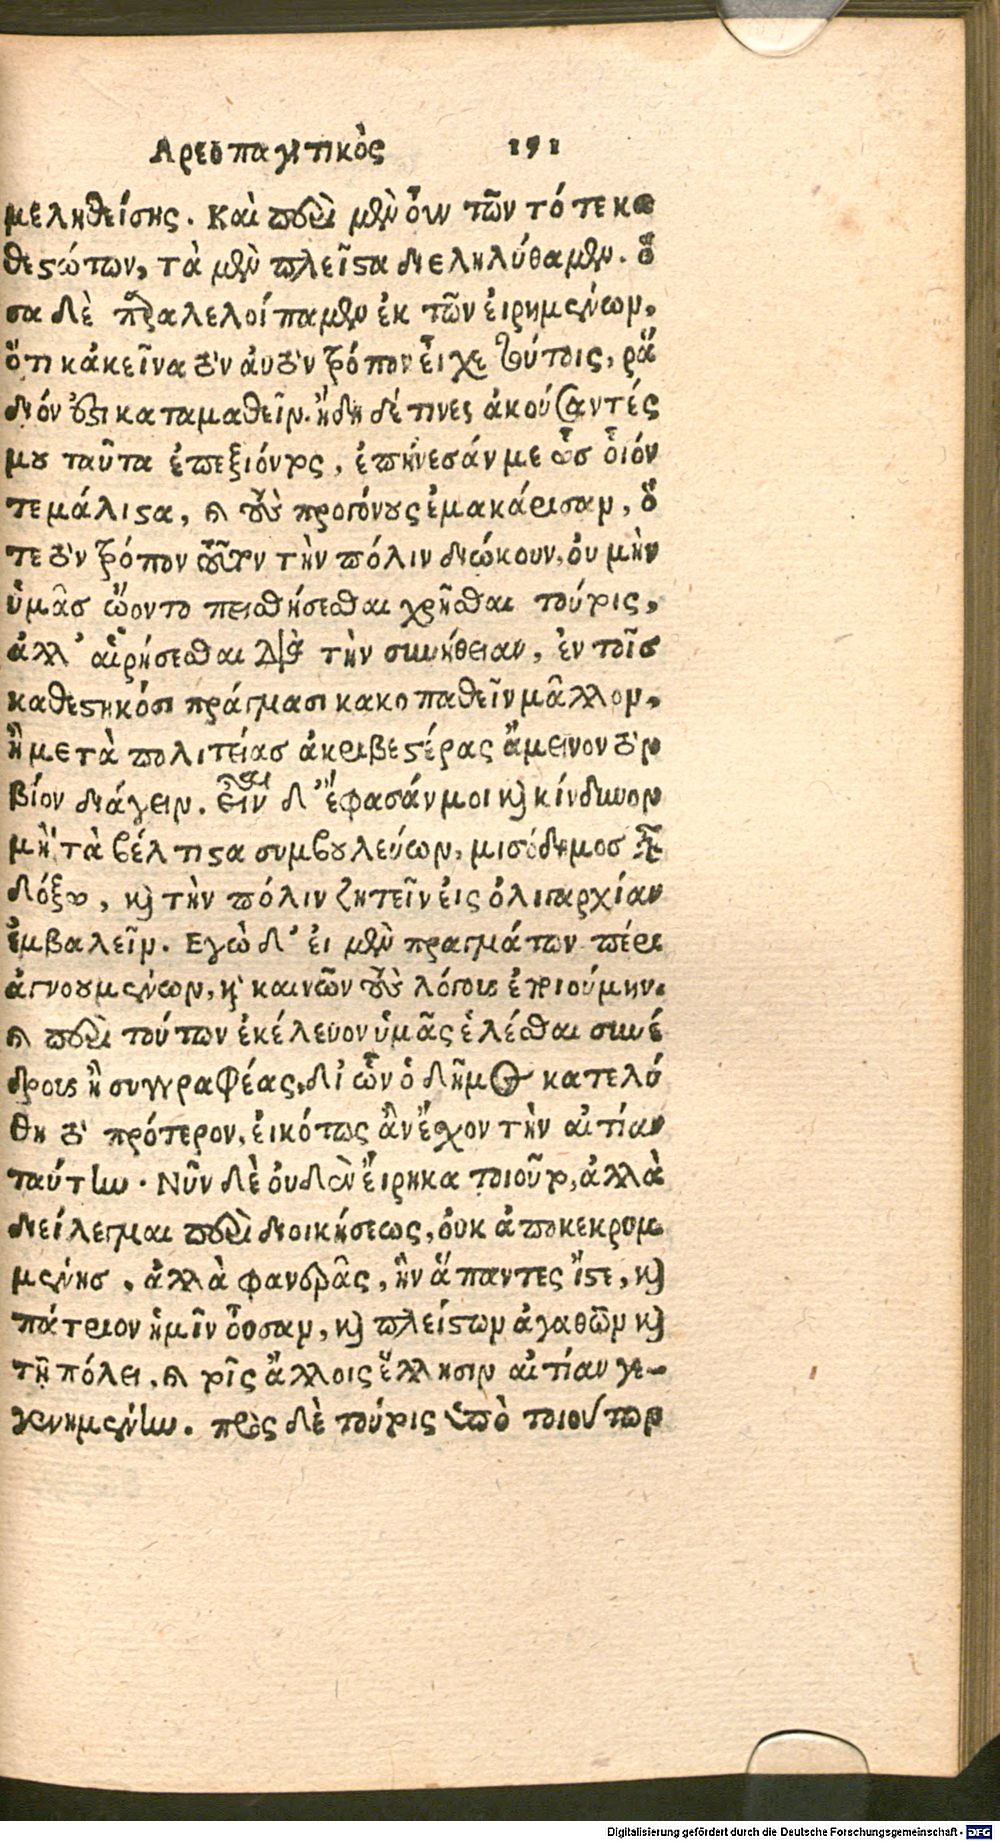 Αρεοπαγιτικὸς 191
μεληθείσης. Καὶ περὶ μὲν οὖν τῶν τότε κα
θεστώτων, τὰ μὲν πλεῖστα διεληλύθαμεν. ὅ
σα δὲ παραλελοίπαμεν ἐκ τῶν εἰρημένων,
ὅτι κἀκεῖνα τὸν αὐτὸν τρόπον εἶχε τούτοις, ῥᾴ
διόν ἐστι καταμαθεῖν. ἤδη δέ τινες ἀκούσαντές
μου ταῦτα ἐπεξιόντος, ἐπῄνεσάν με ὡς οἷόν
τε μάλιστα, καὶ τοὺς προγόνους ἐμακάρισαν, ὅ
τε τὸν τρόπον τοῦτον τὴν πόλιν διώκουν, οὐ μὴν
ὑμᾶς ᾤοντο πεισθήσεσθαι χρῆσθαι τούτοις,
ἀλλ' αἱρήσεσθαι διὰ τὴν συνήθειαν, ἐν τοῖς
καθεστηκόσι πράγμασι κακοπαθεῖν μᾶλλον,
ἢ μετὰ πολιτείας ἀκριβεστέρας ἄμεινον τὸν
βίον διάγειν. εἶναι δ' ἔφασάν μοι καὶ κίνδυνον
μὴ τὰ βέλτιστα συμβουλεύων, μισόδημος εἶναι
δόξω, καὶ τὴν πόλιν ζητεῖν εἰς ὀλιγαρχίαν
ἐμβαλεῖν. Εγὼ δ' εἰ μὲν πραγμάτων πέρι
ἀγνουμένων, καὶ καινῶν τοὺς λόγους ἐποιούμην,
καὶ περὶ τούτων ἐκέλευον ὑμᾶς ἑλέσθαι συνέ
δρους ἢ συγγραφέας, δι' ὧν ὁ δῆμος κατελύ
θη τὸ πρότερον, εἰκότως ἂν ἔσχον τὴν αἰτίαν
ταύτην. Νῦν δὲ οὐδὲν εἴρηκα τοιοῦτον, ἀλλὰ
διείλεγμαι περὶ διοικήσεως, οὐκ ἀποκεκρυμ
μένης, ἀλλὰ φανερᾶς, ἣν ἅπαντες ἴστε, καὶ
πάτριον ἡμῖν οὖσαν, καὶ πλείστων ἀγαθῶν καὶ
τῇ πόλει, καὶ τοῖς ἄλλοις ἕλλησιν αἰτίαν γε-
γενημένην. πρὸς δὲ τούτοις ὑπὸ τοιούτων
Digitalisierung gefördert durch die Deutsche Forschungsgemeinschaft - DFG